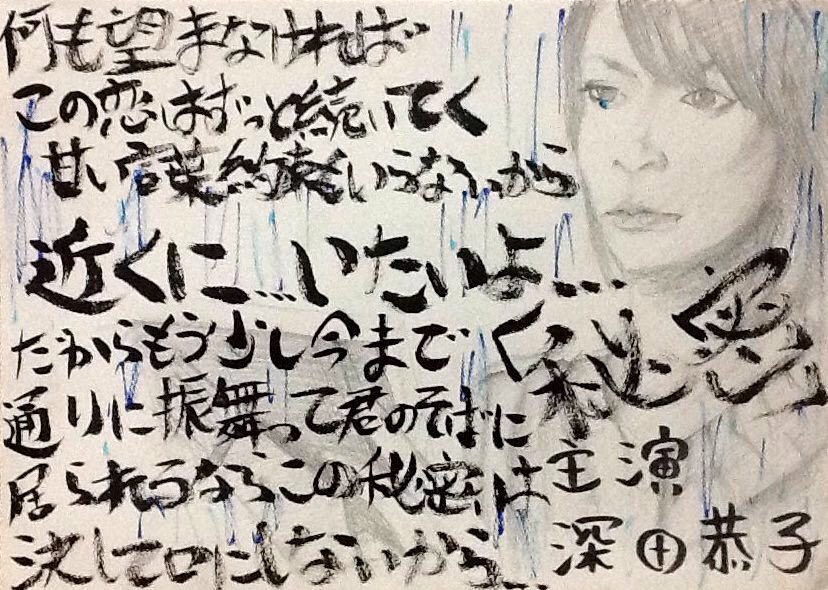 何も望まなければ
この恋はずっと続いてく
甘い言葉約束いらないから
近くに…いたいよ…
だからもう少し今まで
通りに振舞って君のそばに
居られるならこの秘密は
決して口にしないから…
秘密
主演
深田恭子